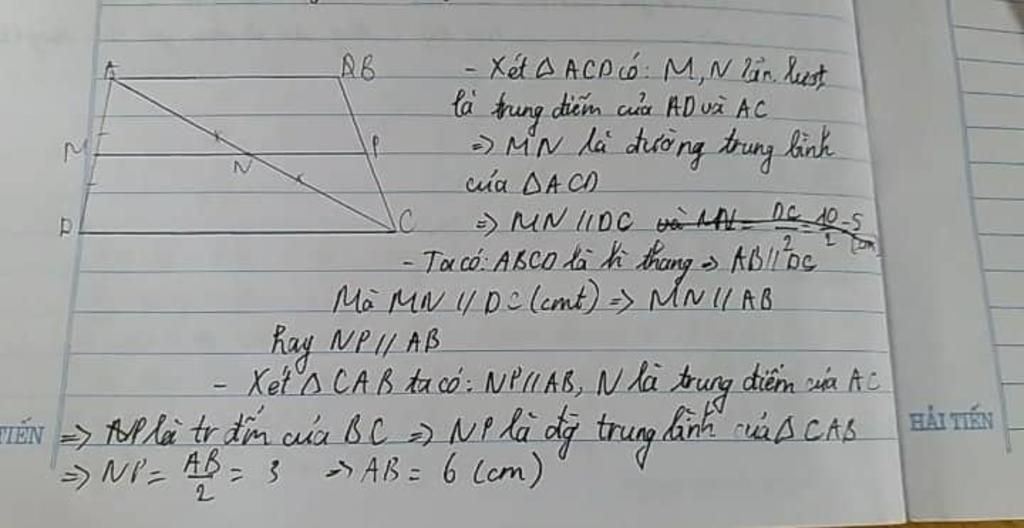 A
B
M
N
P
D
C
- Xét Δ ACD có: M, N lần lượt
là trung điểm của AD và AC
=> MN là đường trung bình
của Δ ACD
=> MN // DC và MN = DC/2 = 10/2 = 5 (cm)
- Ta có: ABCD là hthang => AB // DC
Mà MN // DC (cmt) => MN // AB
hay NP // AB
- Xét Δ CAB ta có: NP // AB, N là trung điểm của AC
=> P là tr điểm của BC => NP là đg trung bình của Δ CAB
=> NP = AB/2 = 3 => AB = 6 (cm)
TIẾN
HẢI TIẾN